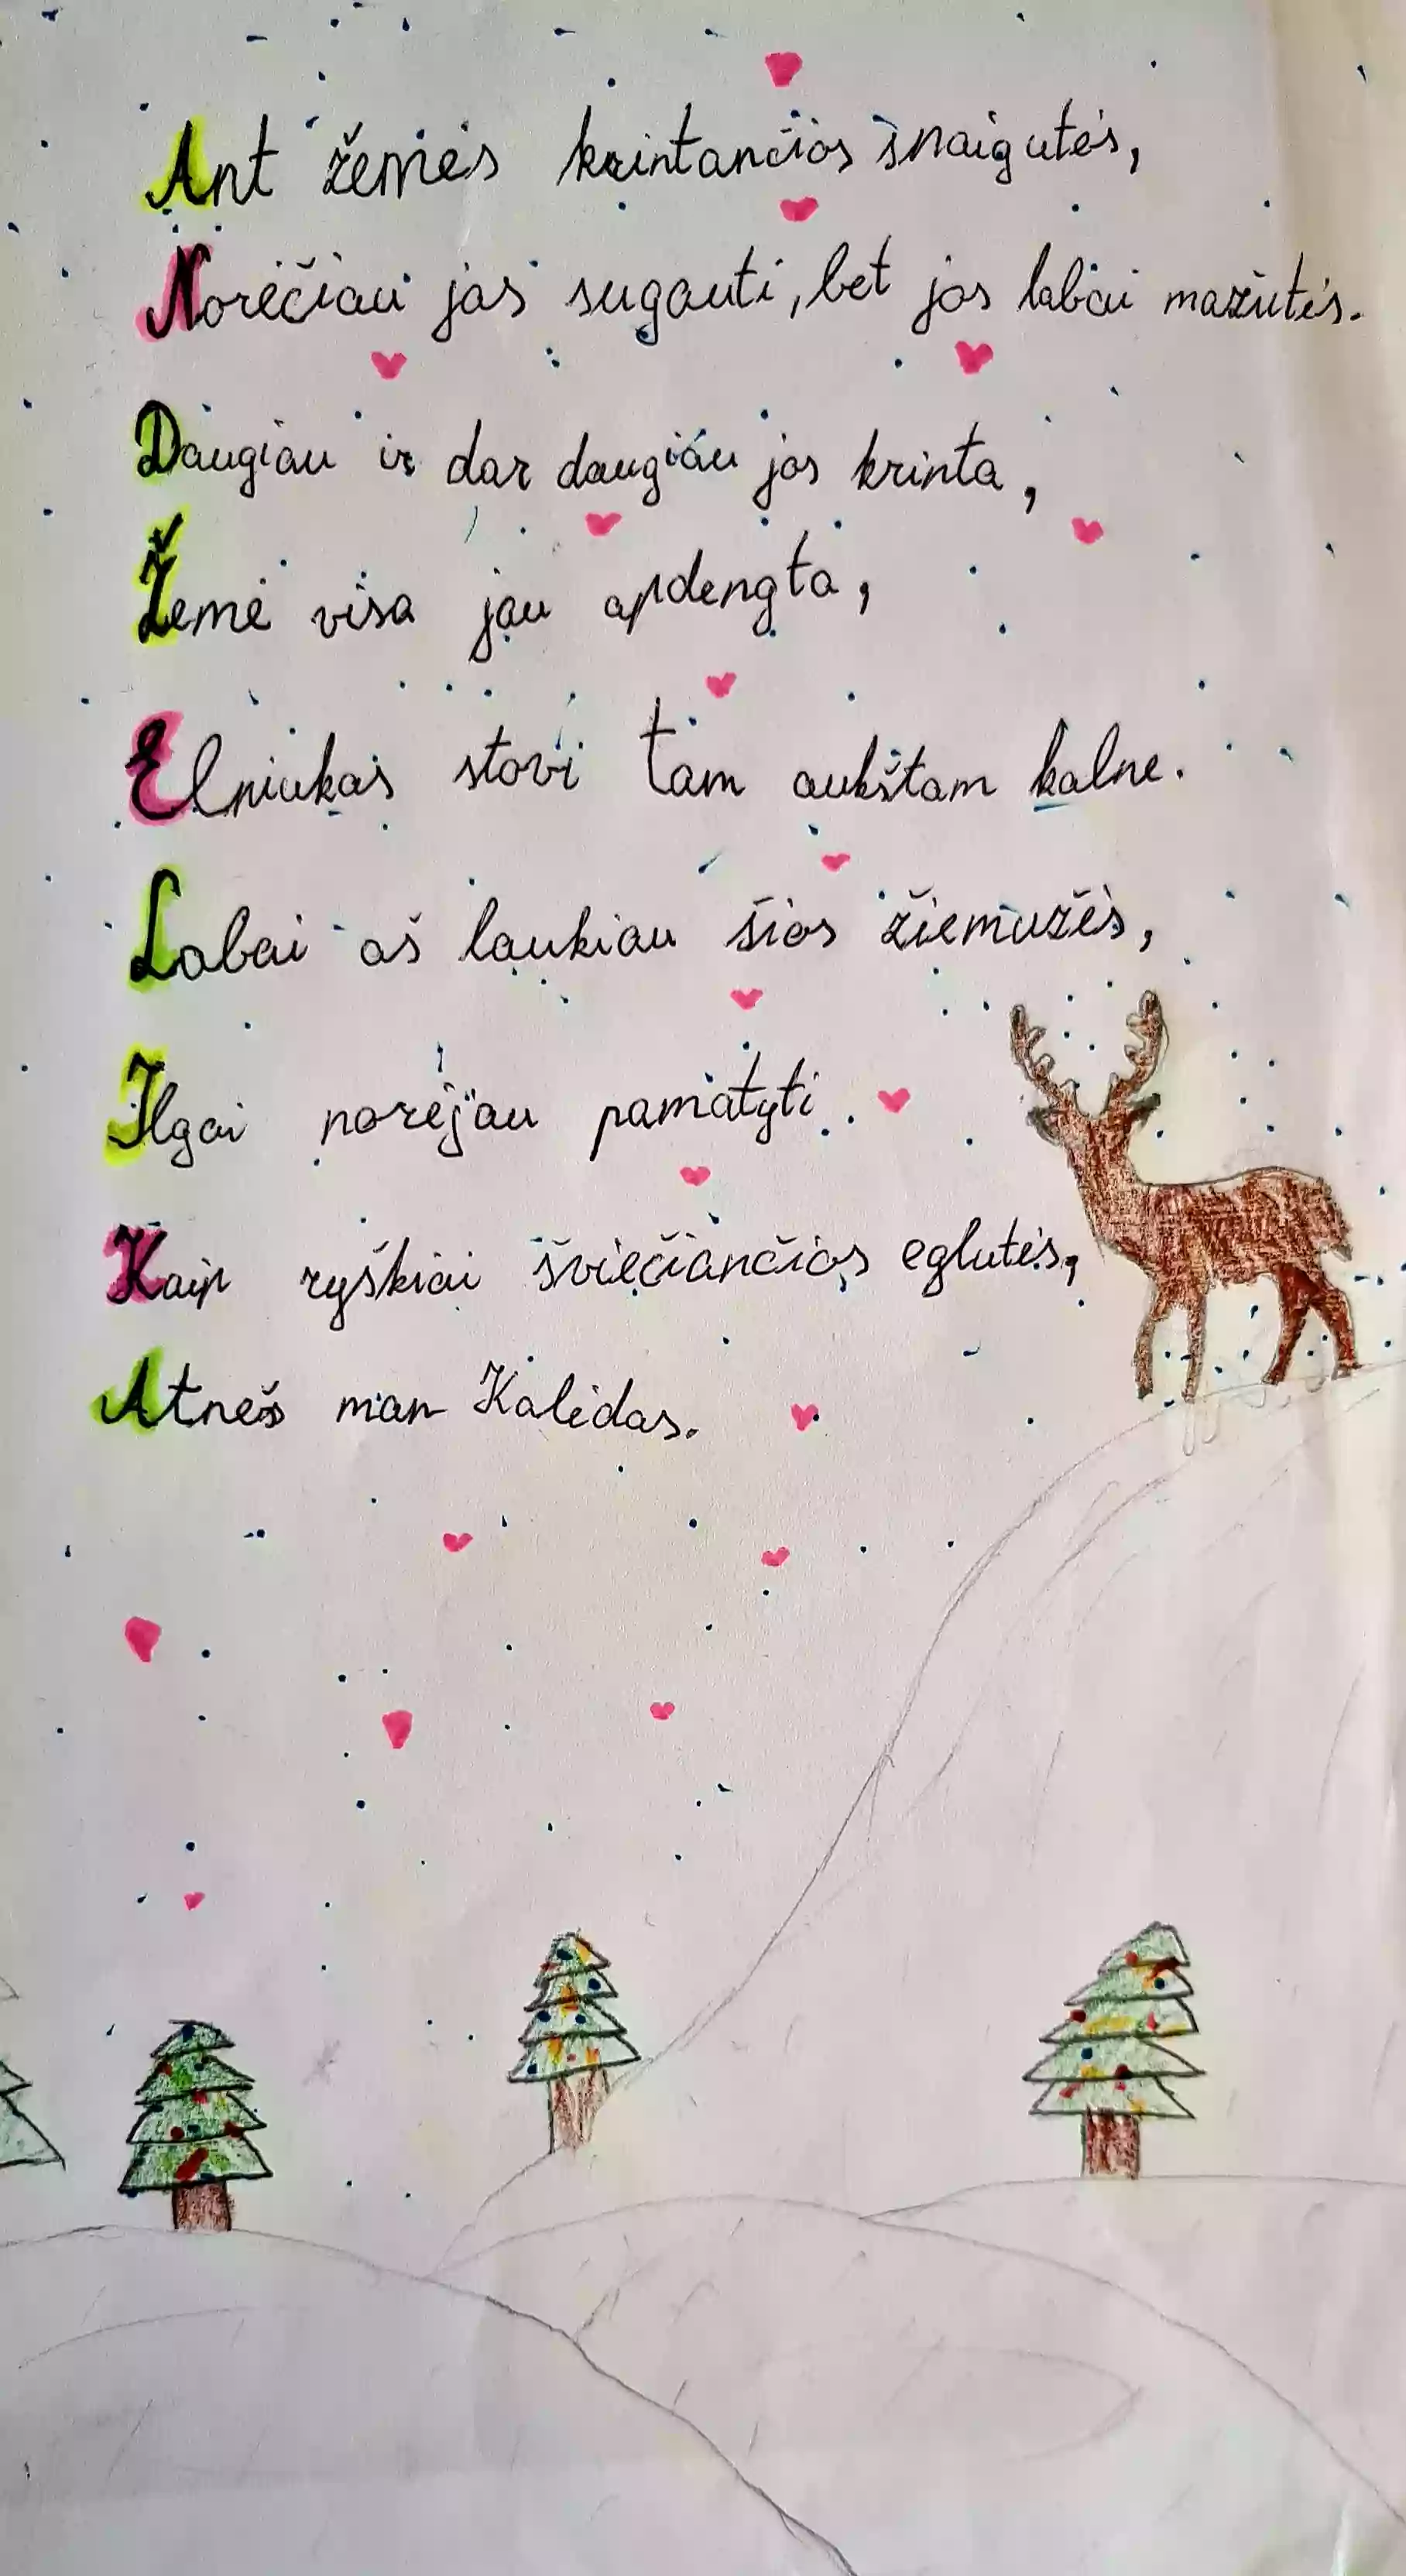 Ant žemės krintančios snaigutės,
Norėčiau jas sugauti, bet jos labai mažutės.
Daugiau ir dar daugiau jos krinta,
Žemė visa jau apdengta,
Elniukas stovi tam aukštam kalne.
Labai aš laukiau šios žiemužės,
Ilgai norėjau pamatyti.
Kaip ryškiai šviečiančios eglutės,
Atneš man Kalėdas.